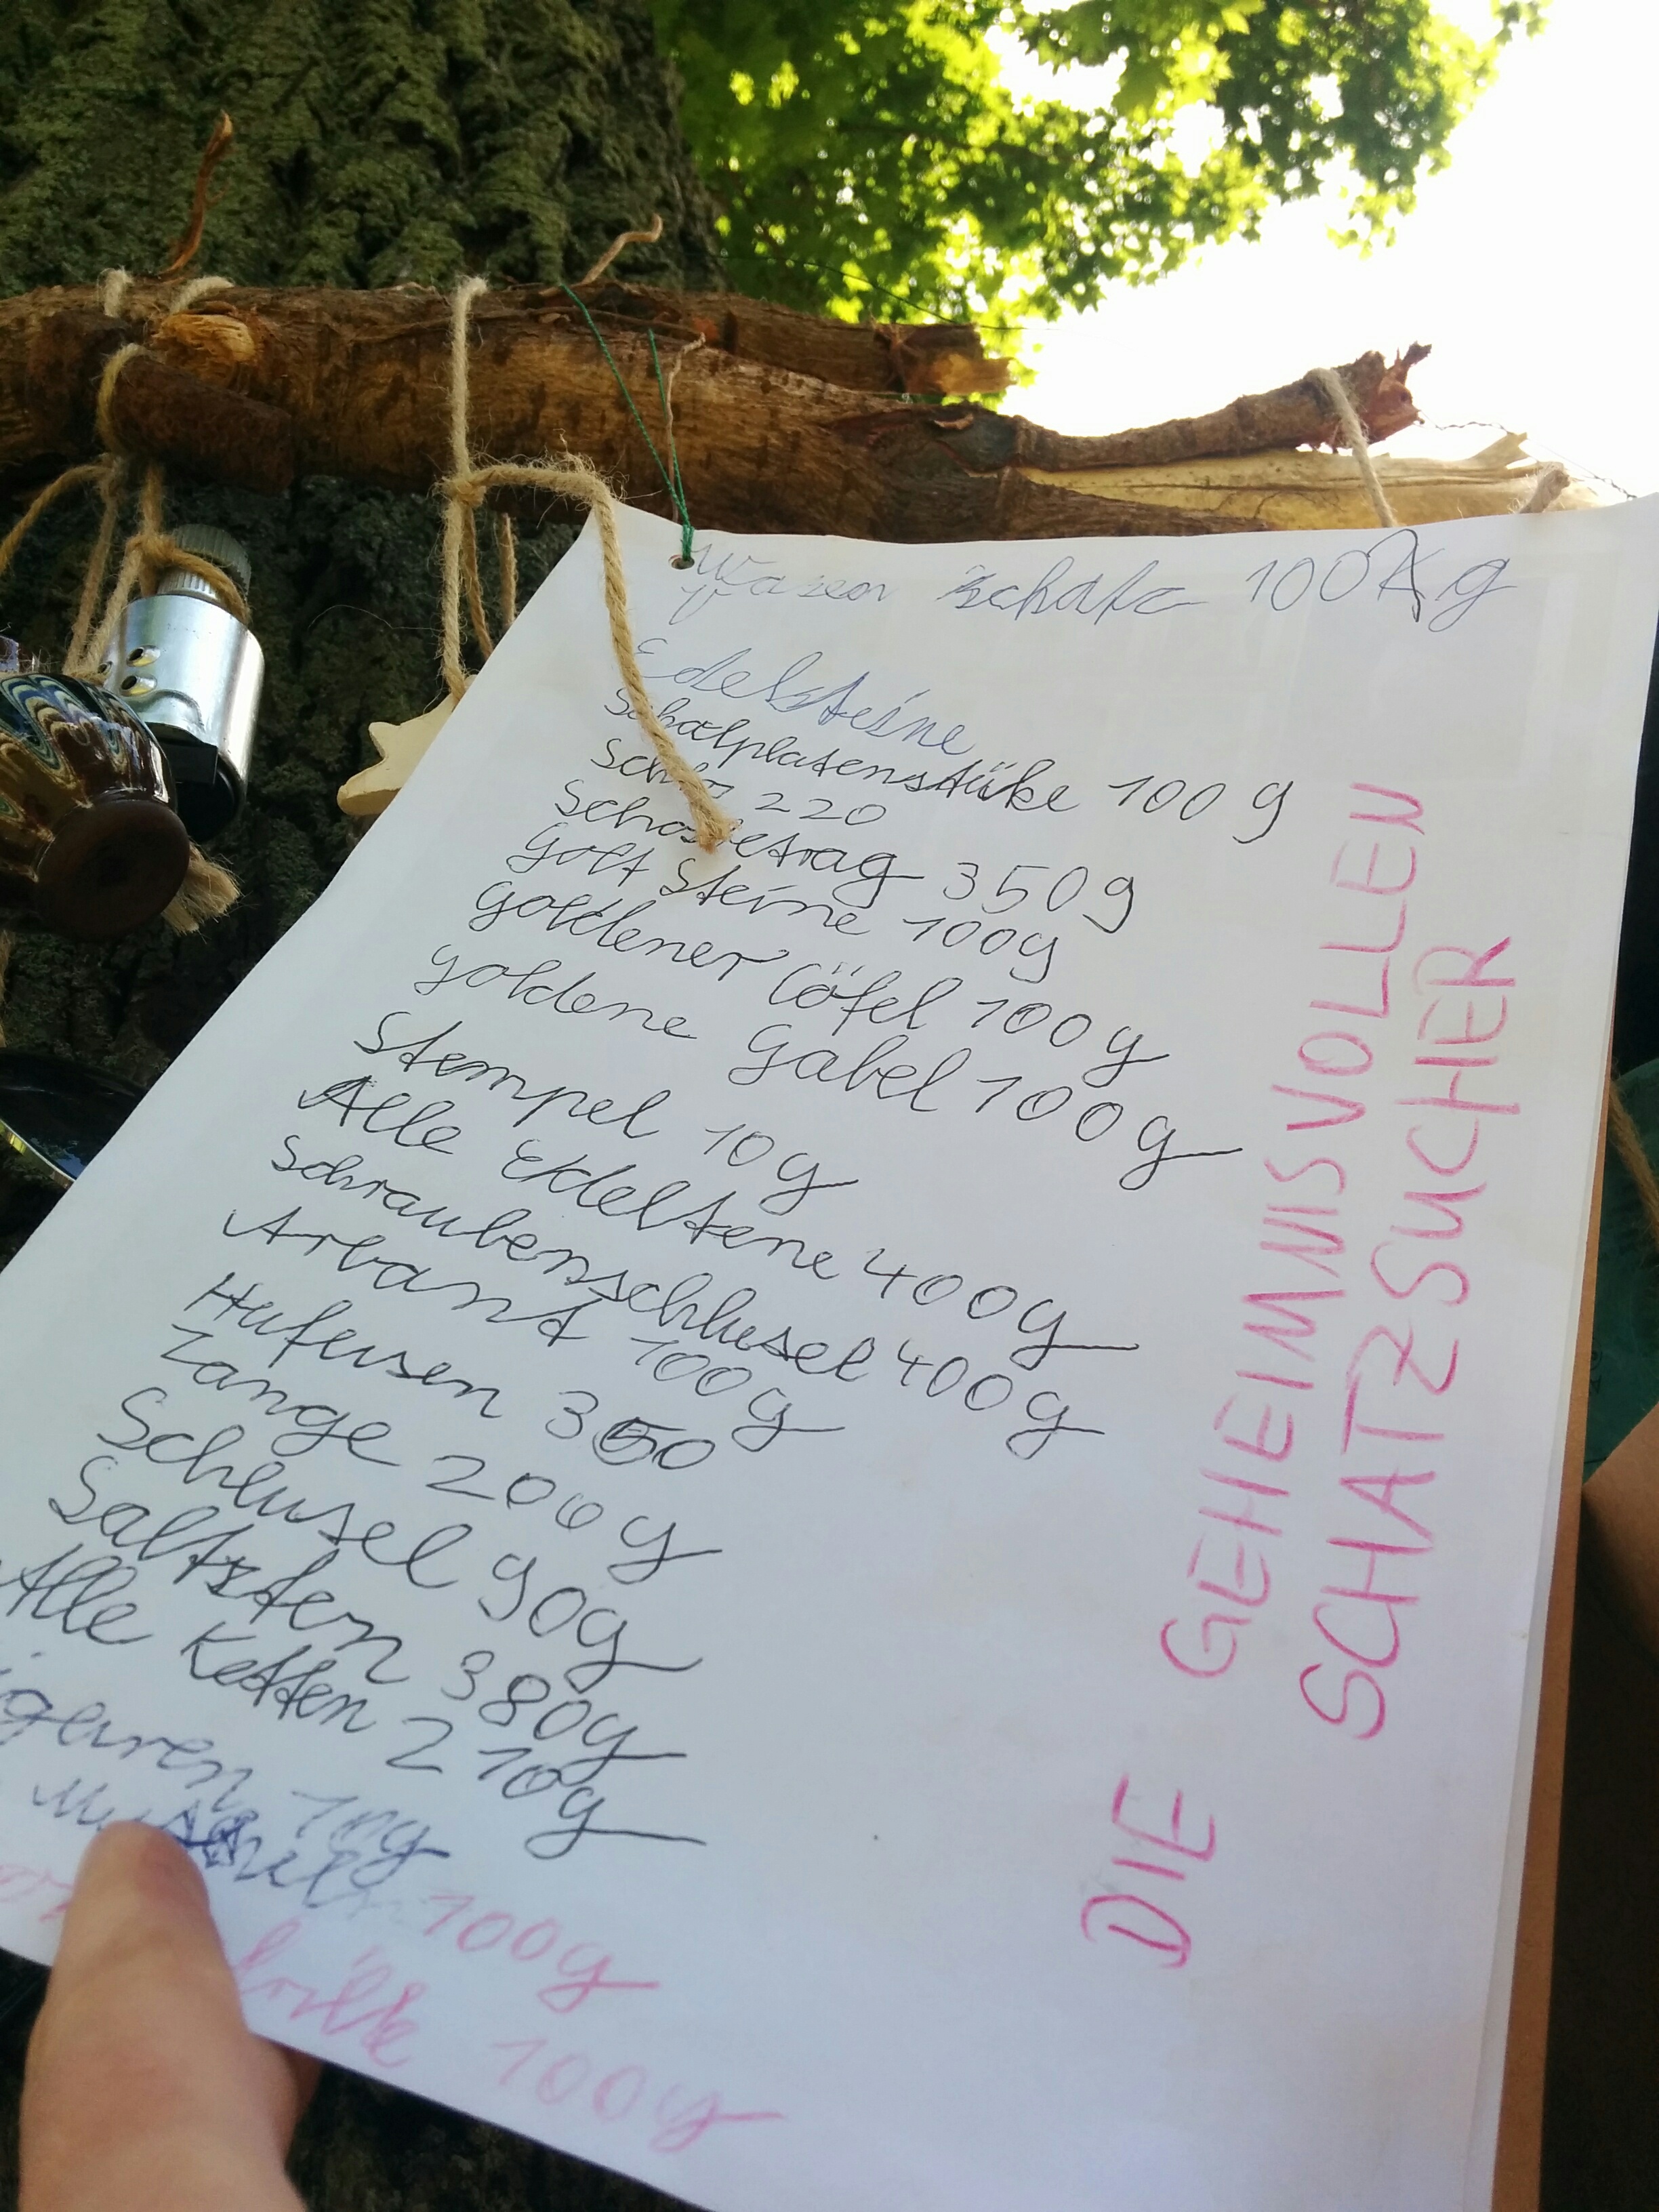 schatz 100kg
Edelsteine
Schalplatenstüke 100 g
220
350g
golt Steine 100g
goldener Löfel 100g
goldene Gabel 100g
Stempel 10g
Alle Edeltene 400g
Schraubenschlusel 400g
Arbant 100g
Hufeisen 350
Zange 200g
Schlusel 90g
Saltzten 380g
Alle Ketten 210g
10g
100g
100g
DIE GEHEIMNISVOLLEN
SCHATZSUCHER